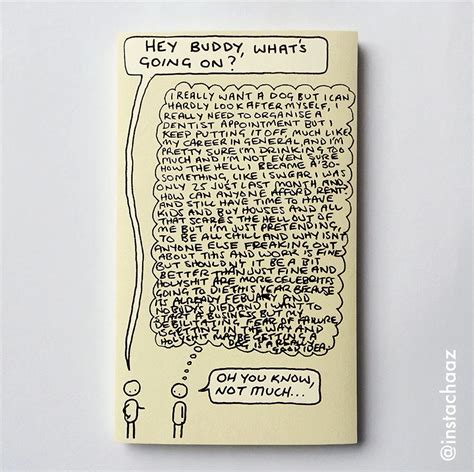 HEY BUDDY, WHAT'S
GOING ON?
I REALLY WANT A DOG BUT I CAN
HARDLY LOOK AFTER MYSELF, I
REALLY NEED TO ORGANISE A
DENTIST APPOINTMENT BUT I
KEEP PUTTING IT OFF, MUCH LIKE
MY CAREER IN GENERAL, AND I'M
PRETTY SURE I'M DRINKING TOO
MUCH AND I'M NOT EVEN SURE
HOW THE HELL I BECAME A 30-
SOMETHING, LIKE I SWEAR I WAS
ONLY 25 JUST LAST MONTH AND
HOW CAN ANYONE AFFORD RENT
AND STILL HAVE TIME TO HAVE
KIDS AND BUY HOUSES AND ALL
THAT SCARES THE HELL OUT OF
ME BUT I'M JUST PRETENDING,
TO BE ALL CHILL AND WHY ISN'T
ANYONE ELSE FREAKING OUT
ABOUT THIS AND WORK IS FINE
BUT SHOULDN'T IT BE A BIT
BETTER THAN JUST FINE AND
HOLYSHIT ARE MORE CELEBRITIES
GOING TO DIE THIS YEAR BECAUSE
IT'S ALREADY FEBUARY AND
NOBODY DIED AND I WANT TO
START A BUSINESS BUT MY
DEBILITATING FEAR OF FAILURE
IS GETTING IN THE WAY AND
HOLYSHIT MAYBE GETTING A
DOG IS A REALLY
GOOD IDEA.
OH YOU KNOW,
NOT MUCH...
@instachaaz